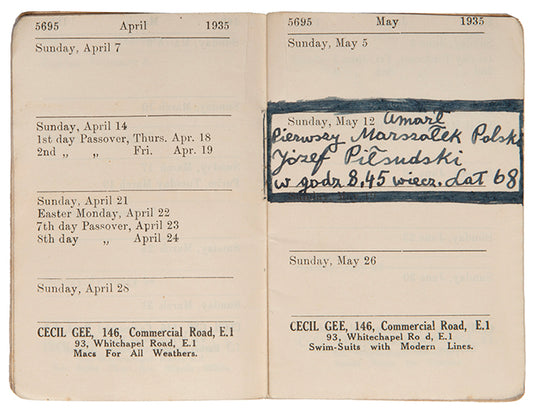 5695 April 1935
Sunday, April 7
Sunday, April 14
1st day Passover, Thurs. Apr. 18
2nd „ „ Fri. Apr. 19
Sunday, April 21
Easter Monday, April 22
7th day Passover, April 23
8th day „ April 24
Sunday, April 28
CECIL GEE, 146, Commercial Road, E.1
93, Whitchapel Road, E.1
Macs For All Weathers.
5695 May 1935
Sunday, May 5
Sunday, May 12 Umarł
Pierwszy Marszałek Polski
Józef Piłsudski
w godz 8.45 wiecz. Lat 68
Sunday, May 26
CECIL GEE, 146, Commercial Road, E.1
93, Whitechapel Ro d, E.1
Swim-Suits with Modern Lines.